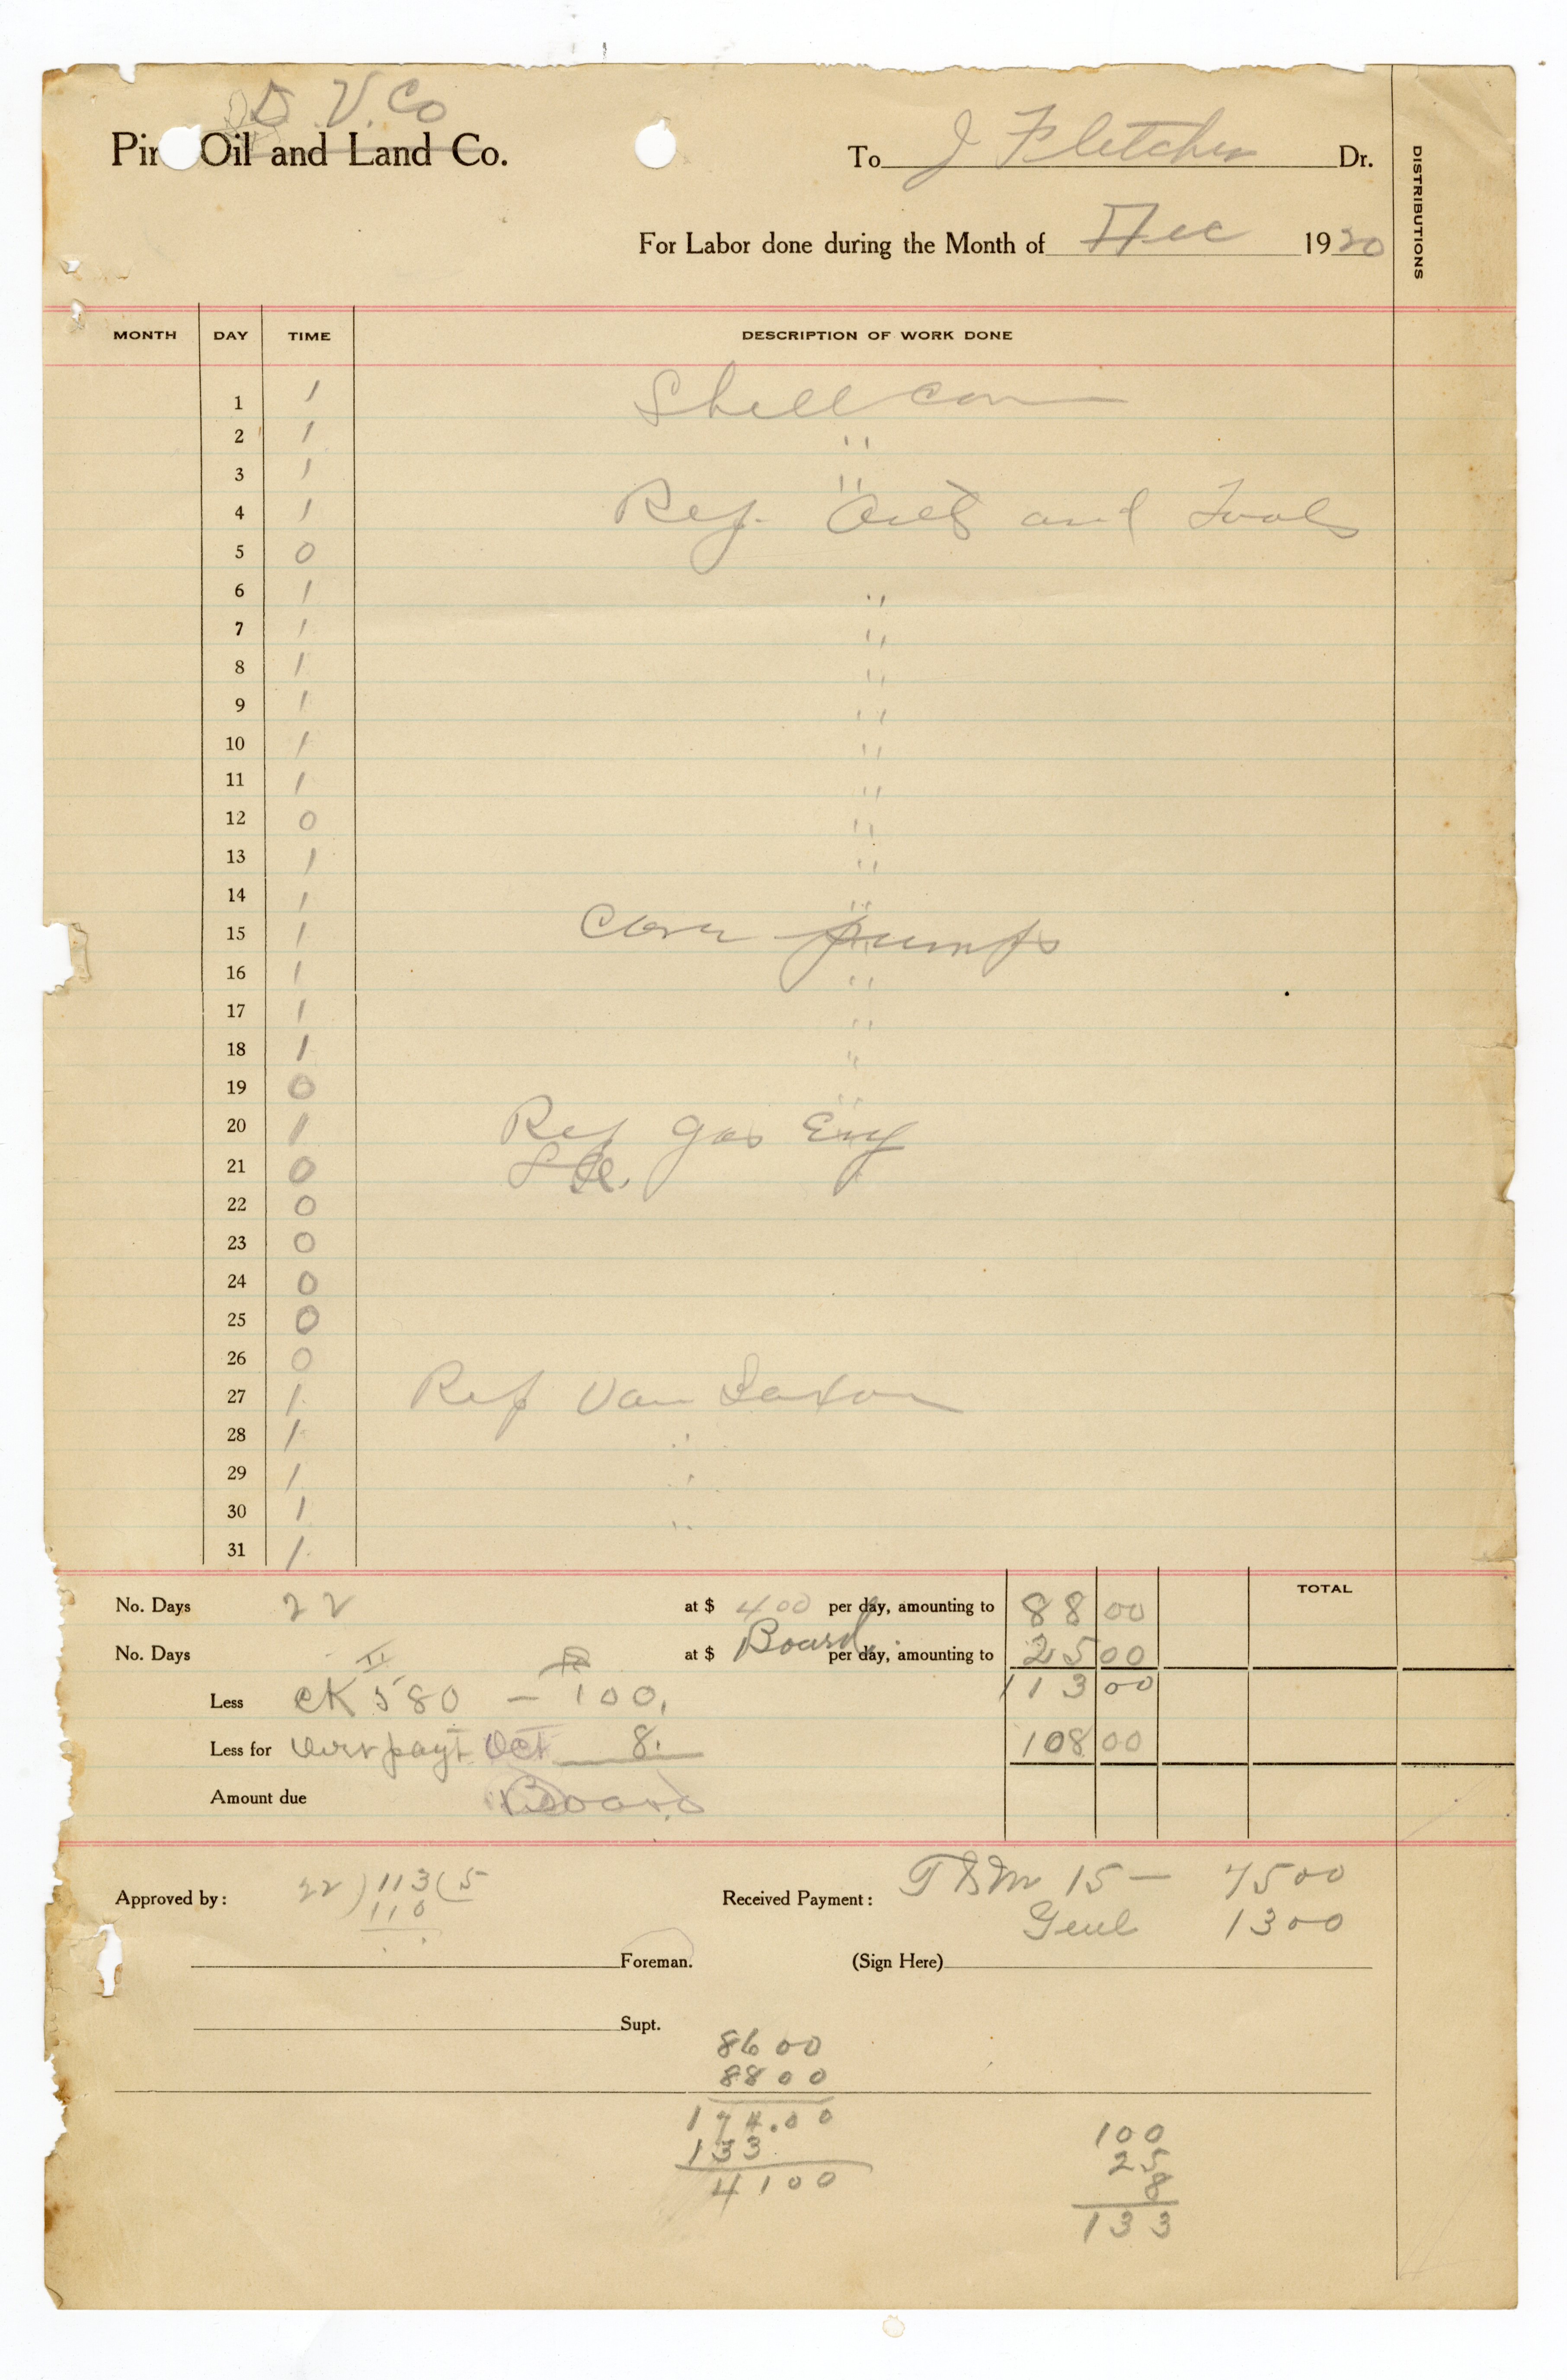 D. V. Co
Pin Oil and Land Co.
To J Fletcher Dr.
DISTRIBUTIONS
For Labor done during the Month of Dec 1920
MONTH DAY TIME DESCRIPTION OF WORK DONE
1 1 Shell corn
2 1 "
3 1 "
4 1 Rep. and Tools
5 0
6 1 "
7 1 "
8 1 "
9 1 "
10 1 "
11 1 "
12 0 "
13 1 "
14 1 "
15 1 Corn pumps
16 1 "
17 1 "
18 1 "
19 0 "
20 1 Rep gas Eng
21 0
22 0
23 0
24 0
25 0
26 0
27 1 Rep Van
28 1 "
29 1 "
30 1 "
31 1
TOTAL
No. Days 22 at $ 400 per day, amounting to 88 00
No. Days at $ Board. per day, amounting to 25 00
Less CK 580 — 100. 113 00
Less for Over payt Oct 8. 108 00
Amount due Board
Approved by: 22)113(5 Received Payment: 15 — 7500
110 Genl 1300
Foreman. (Sign Here)
Supt.
86 00
88 00
174.00
133
41 00
100
25
8
133